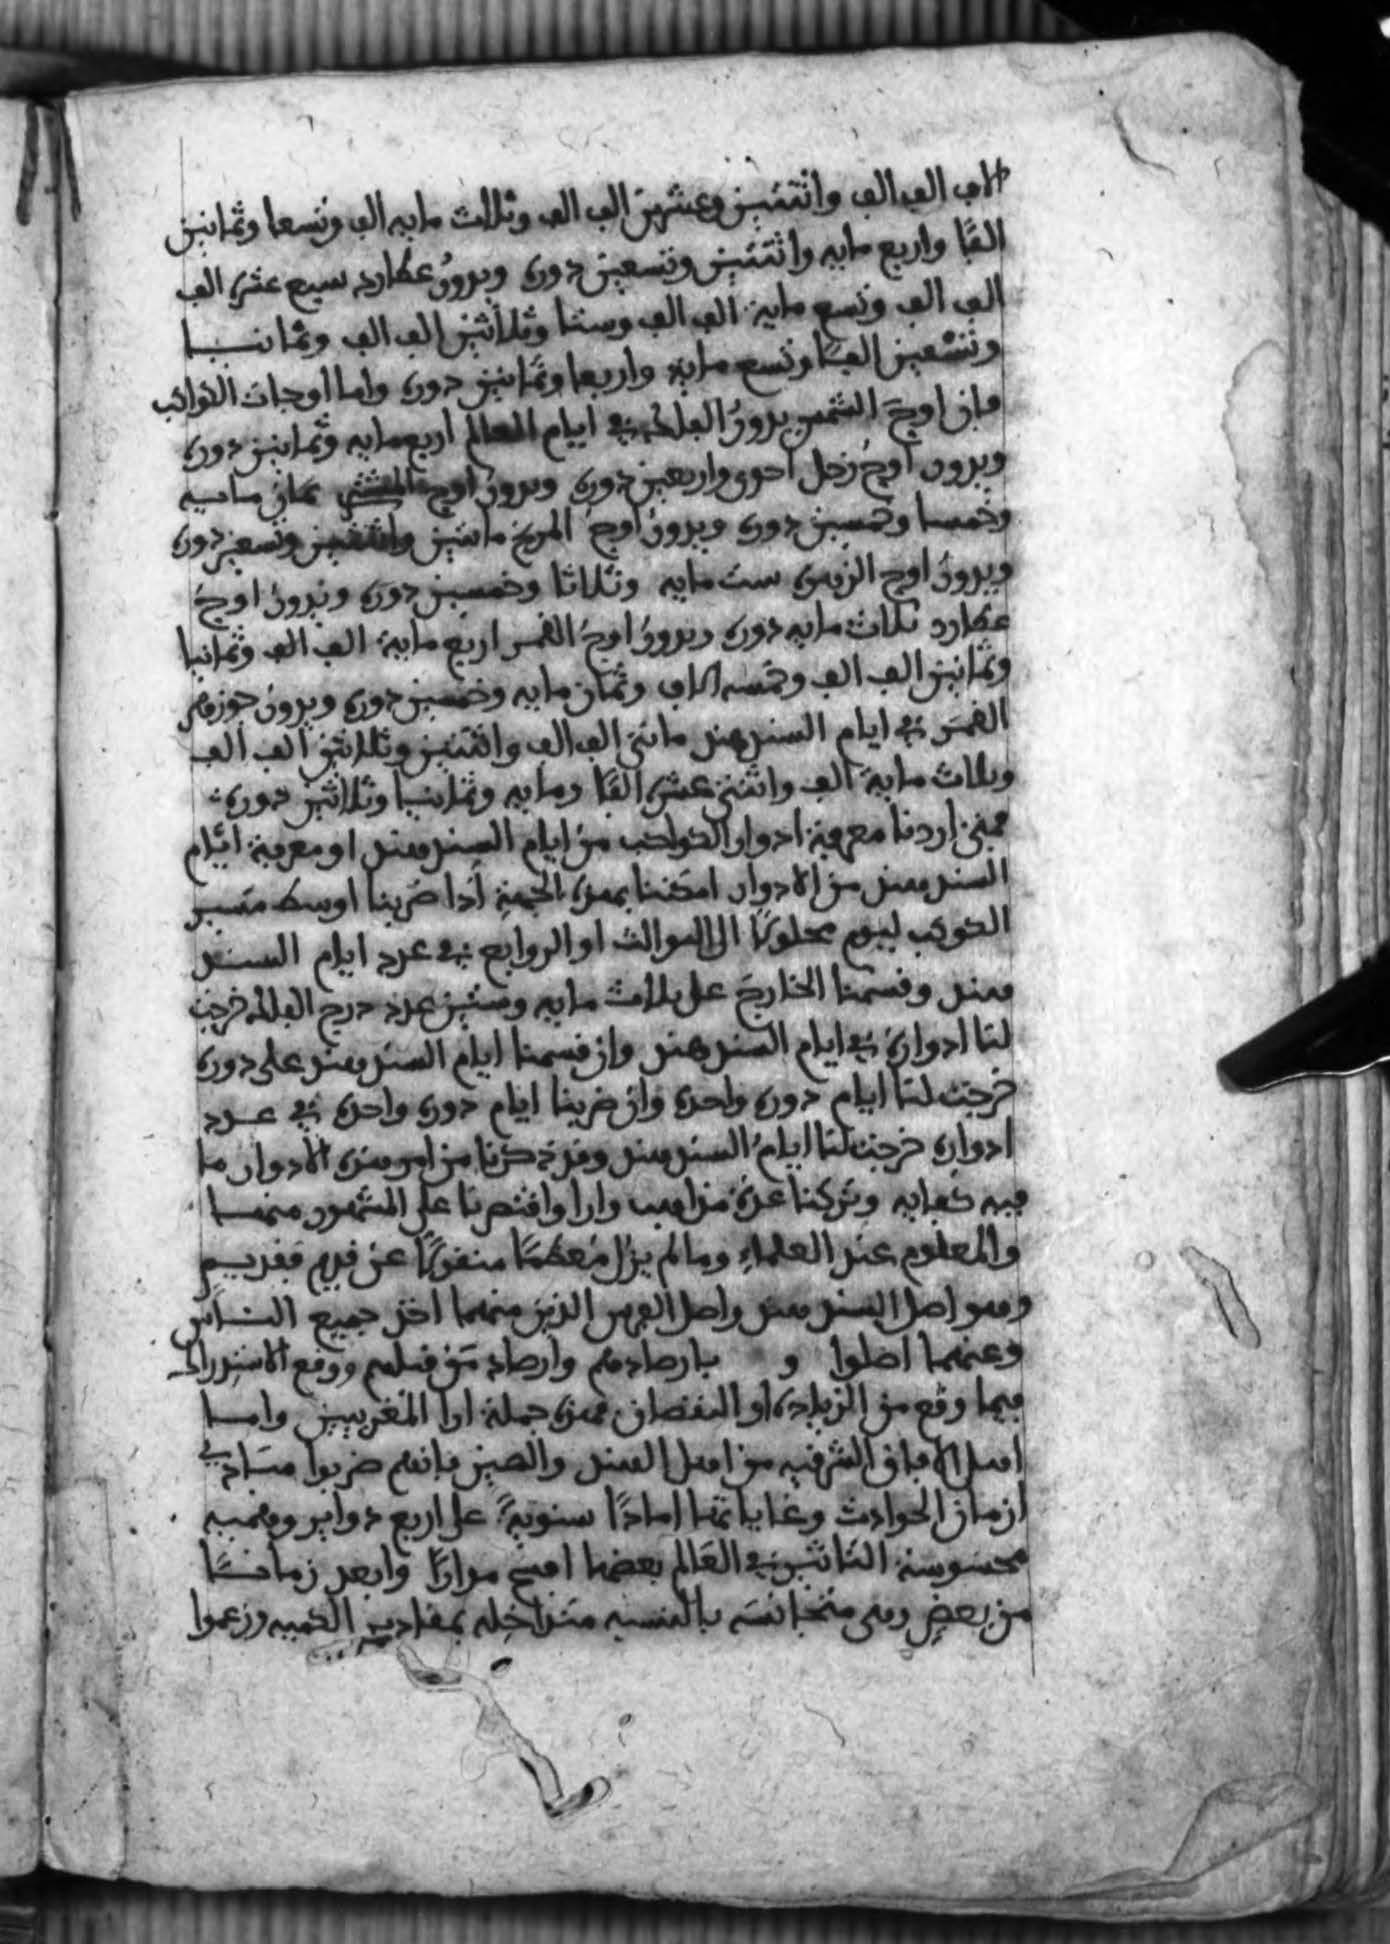 الاف الف الف واثنتين وعشرين الف الف وثلاث مايه الف وتسعا وثمانين
الفًا واربع مايه واثنتين وتسعين دورة ويدورُ عطارد سبع عشرة الف
الف الف وتسع ماية الف الف وستا وثلاثين الف الف وثمانيـا
وتسْعين الفًا وتسع مايه واربعا وثمانين دورة واما اوجات الكواكب
فان اوجَ الشمس يدورُ الفلك في ايام العالم اربع مايه وثمانين دورة
ويدور اوجُ زحل احدى واربعين دورة ويدورُ اوج المشتري ثمان مايـه
وخمسا وخمسين دورة ويدورُ اوجُ المريخ مايتين واثنتين وتسعين دورة
ويدورُ اوج الزهرة ست مايه وثلاثا وخمسين دورة ويدورُ اوجُ
عطارد ثلاث مايه دورة ويدورُ اوجُ القمر اربع ماية الف الف وثمانيا
وثمانين الف الف وخمسه الاف وثمان مايه وخمسين دورة ويدورُ جوزهر
القمر في ايام السند هند مائتي الف الف واثنتين وثلاثين الف الف
وثلاث مايةَ الف واثنتي عشرة الفًا ومايه وثمانيا وثلاثين دورة
فمتى اردنا معرفة ادوار الكواكب من ايام السند هند او معرفة ايام
السند هند من الادوار امكننا بهذه الجهةِ اذا ضربنا اوسط مسير
الكوكب ليوم محلولًا الى الثوالث او الروابع في عدد ايام السنـد
هند وقسمنا الخارجَ على ثلاث مايه وستين عدد درج الفلك خرجت
لنا ادواره في ايام السند هند وان قسمنا ايام السند هند على دورة
خرجت لنا ايام دورة واحدة وان ضربنا ايام دورة واحدة في عـدد
ادواره خرجت لنا ايامُ السند هند وقد ذكرنا من امر هذه الادوار ما
فيه كفايه وتركنا عدة مذاهب وارا واقتصرنا على المشهور منهـا
والمعلوم عند العلماء وما لم يزل مُعظمًا منقولًا عن قديم فقديـم
وهو اصل السند هند واصل الفرس الذين منهما اخذ جميع النـاس
وعنهما اصلوا و بارصادهم وارصاد من قبلهم ووقع الاستدراك
فيما وقع من الزيادة او النقصان فهذه جملة ارا المغربيين وامـا
اهل الافاق الشرقيه من اهل الهند والصين فانهم ضربوا مبادي
ازمان الحوادث وغاياتها امادًا سنويةً على اربع دواير وهميه
محسوسة التاثير في العالم بعضها افسح مدارًا وابعد زمانـًا
من بعض وهي متجانسة بالنسبه متداخله بمقادير الكميه وزعموا